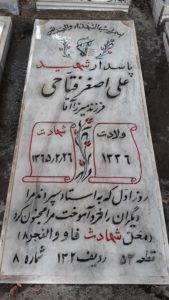 پاسدار شهید
علی اصغر فتاحی
فرزند میرزا آقا
ولادت
۱۳۳۶
شهادت
۱۳۶۵/۲/۲۶
روز اول که به استاد سپردند مرا
دیگران را خرد آموخت مرا مجنون کرد
(محل شهادت فاو والفجر ۸)
قطعه ۵۳ ردیف ۱۳۲ شماره ۸